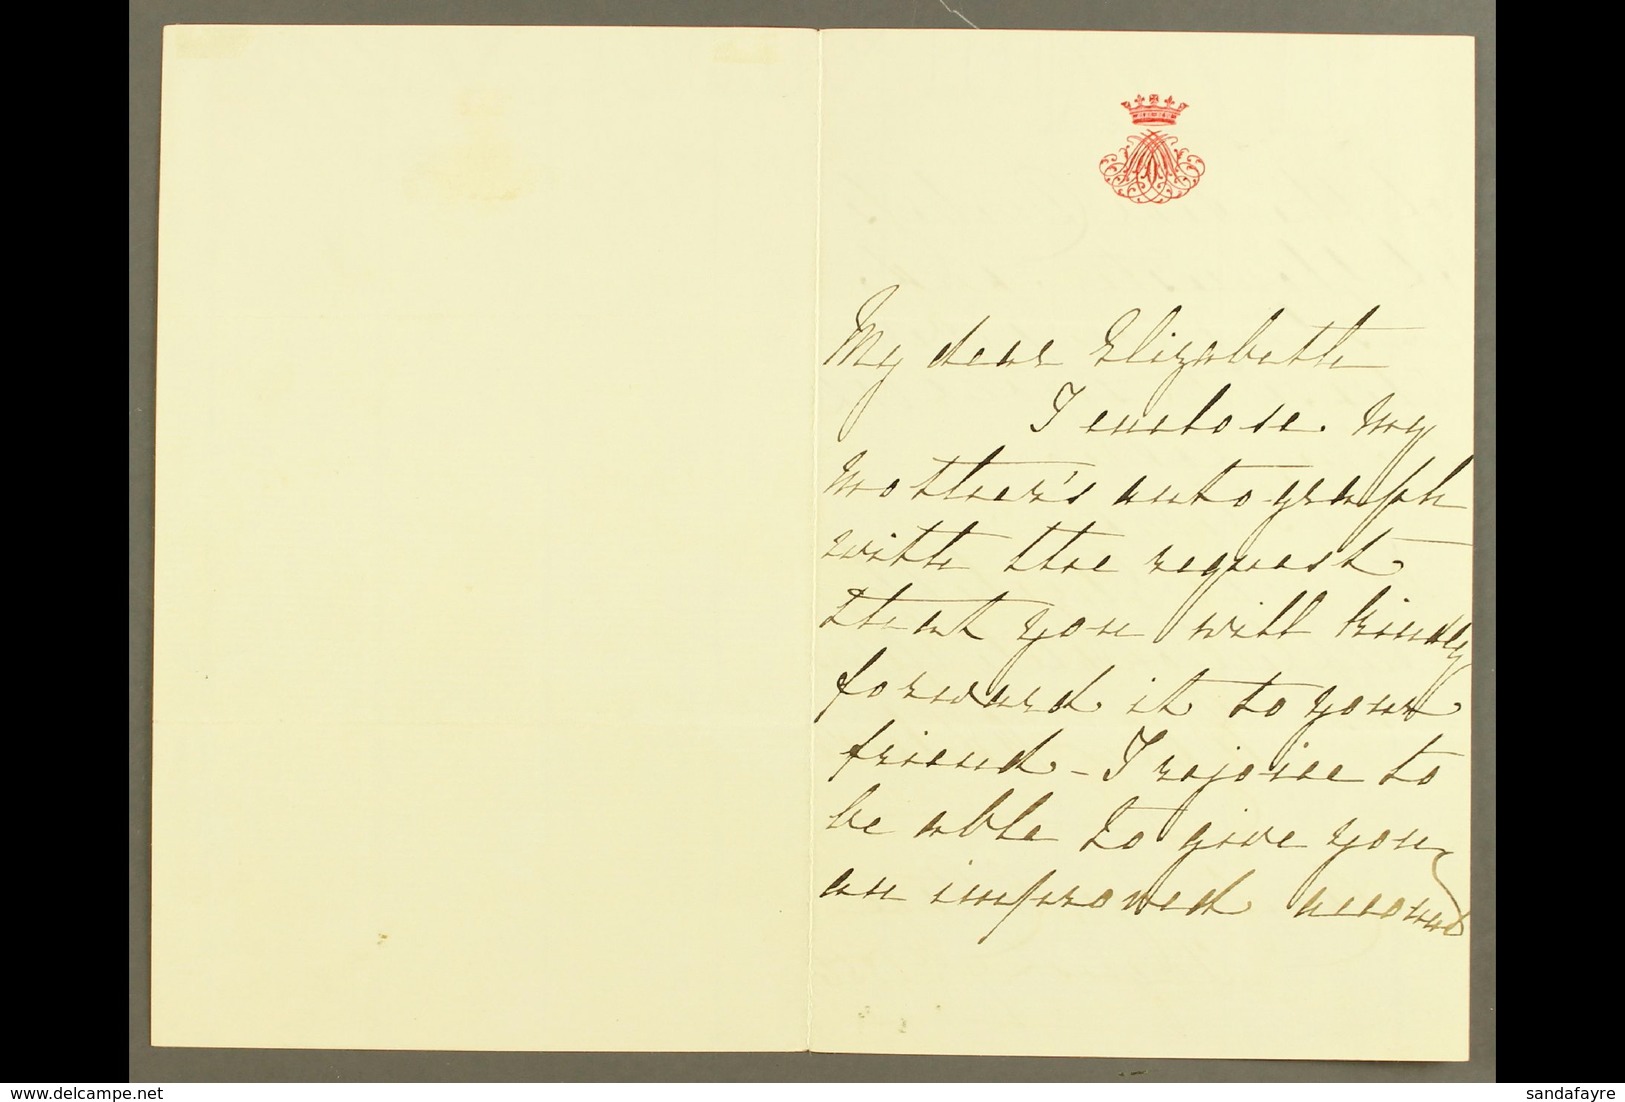 My dear Elizabeth
I enclose my
mother's autograph
with the request
that you will kindly
forward it to your
friend - I rejoice to
be able to give you
an improved account
delcampe.net
sandafayre